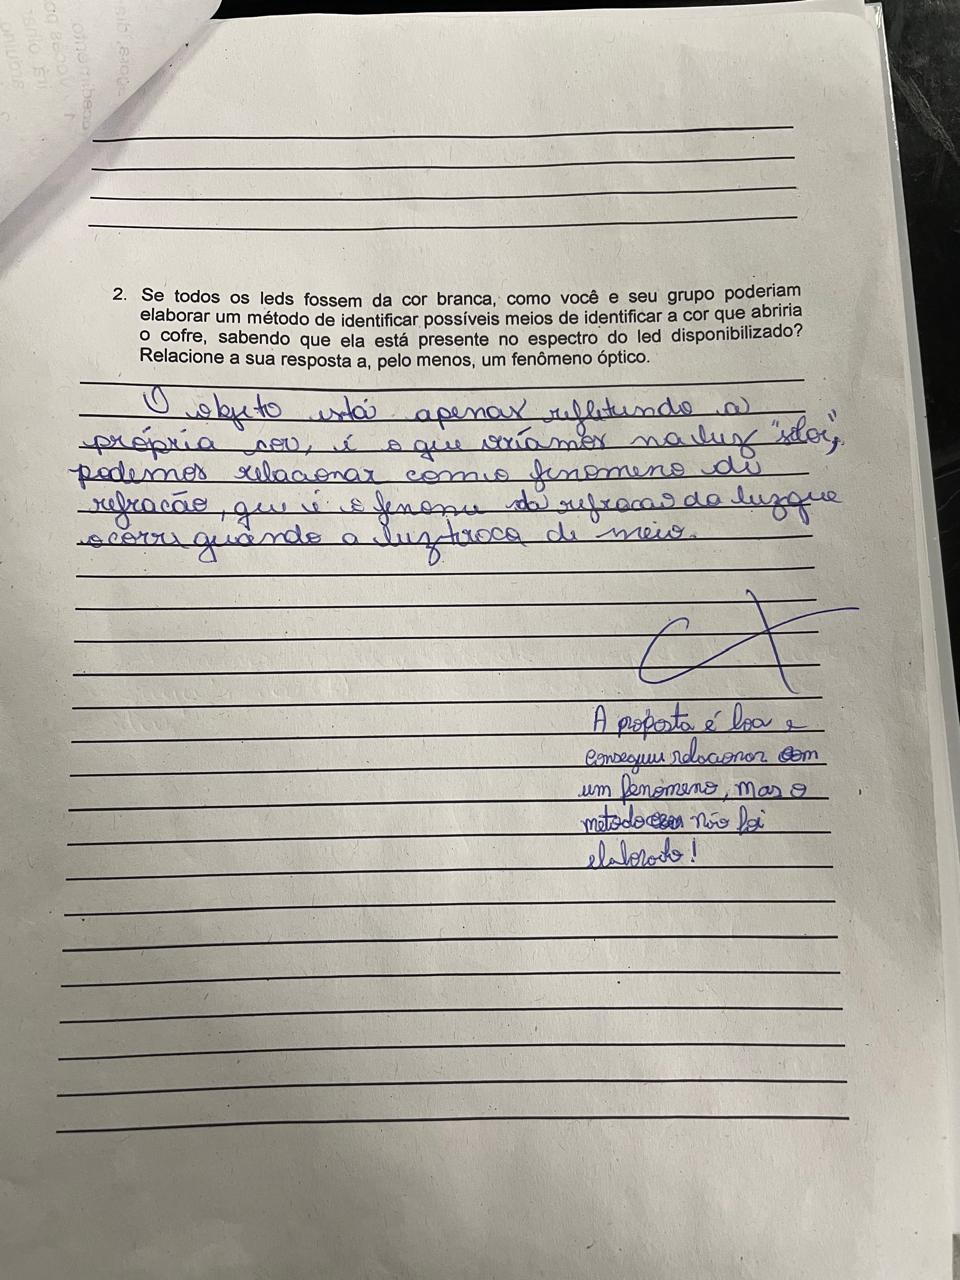 2. Se todos os leds fossem da cor branca, como você e seu grupo poderiam
elaborar um método de identificar possíveis meios de identificar a cor que abriria
o cofre, sabendo que ela está presente no espectro do led disponibilizado?
Relacione a sua resposta a, pelo menos, um fenômeno óptico.
O objeto está apenas refletindo a
própria cor, é o que víamos na luz
podemos relacionar com o fenomeno de
refração, que é o fenome da refracao da luz que
ocorre quando a luz troca de meio.
A proposta é boa e
conseguiu relacionar com
um fenômeno, mas o
metodo não foi
elaborado!